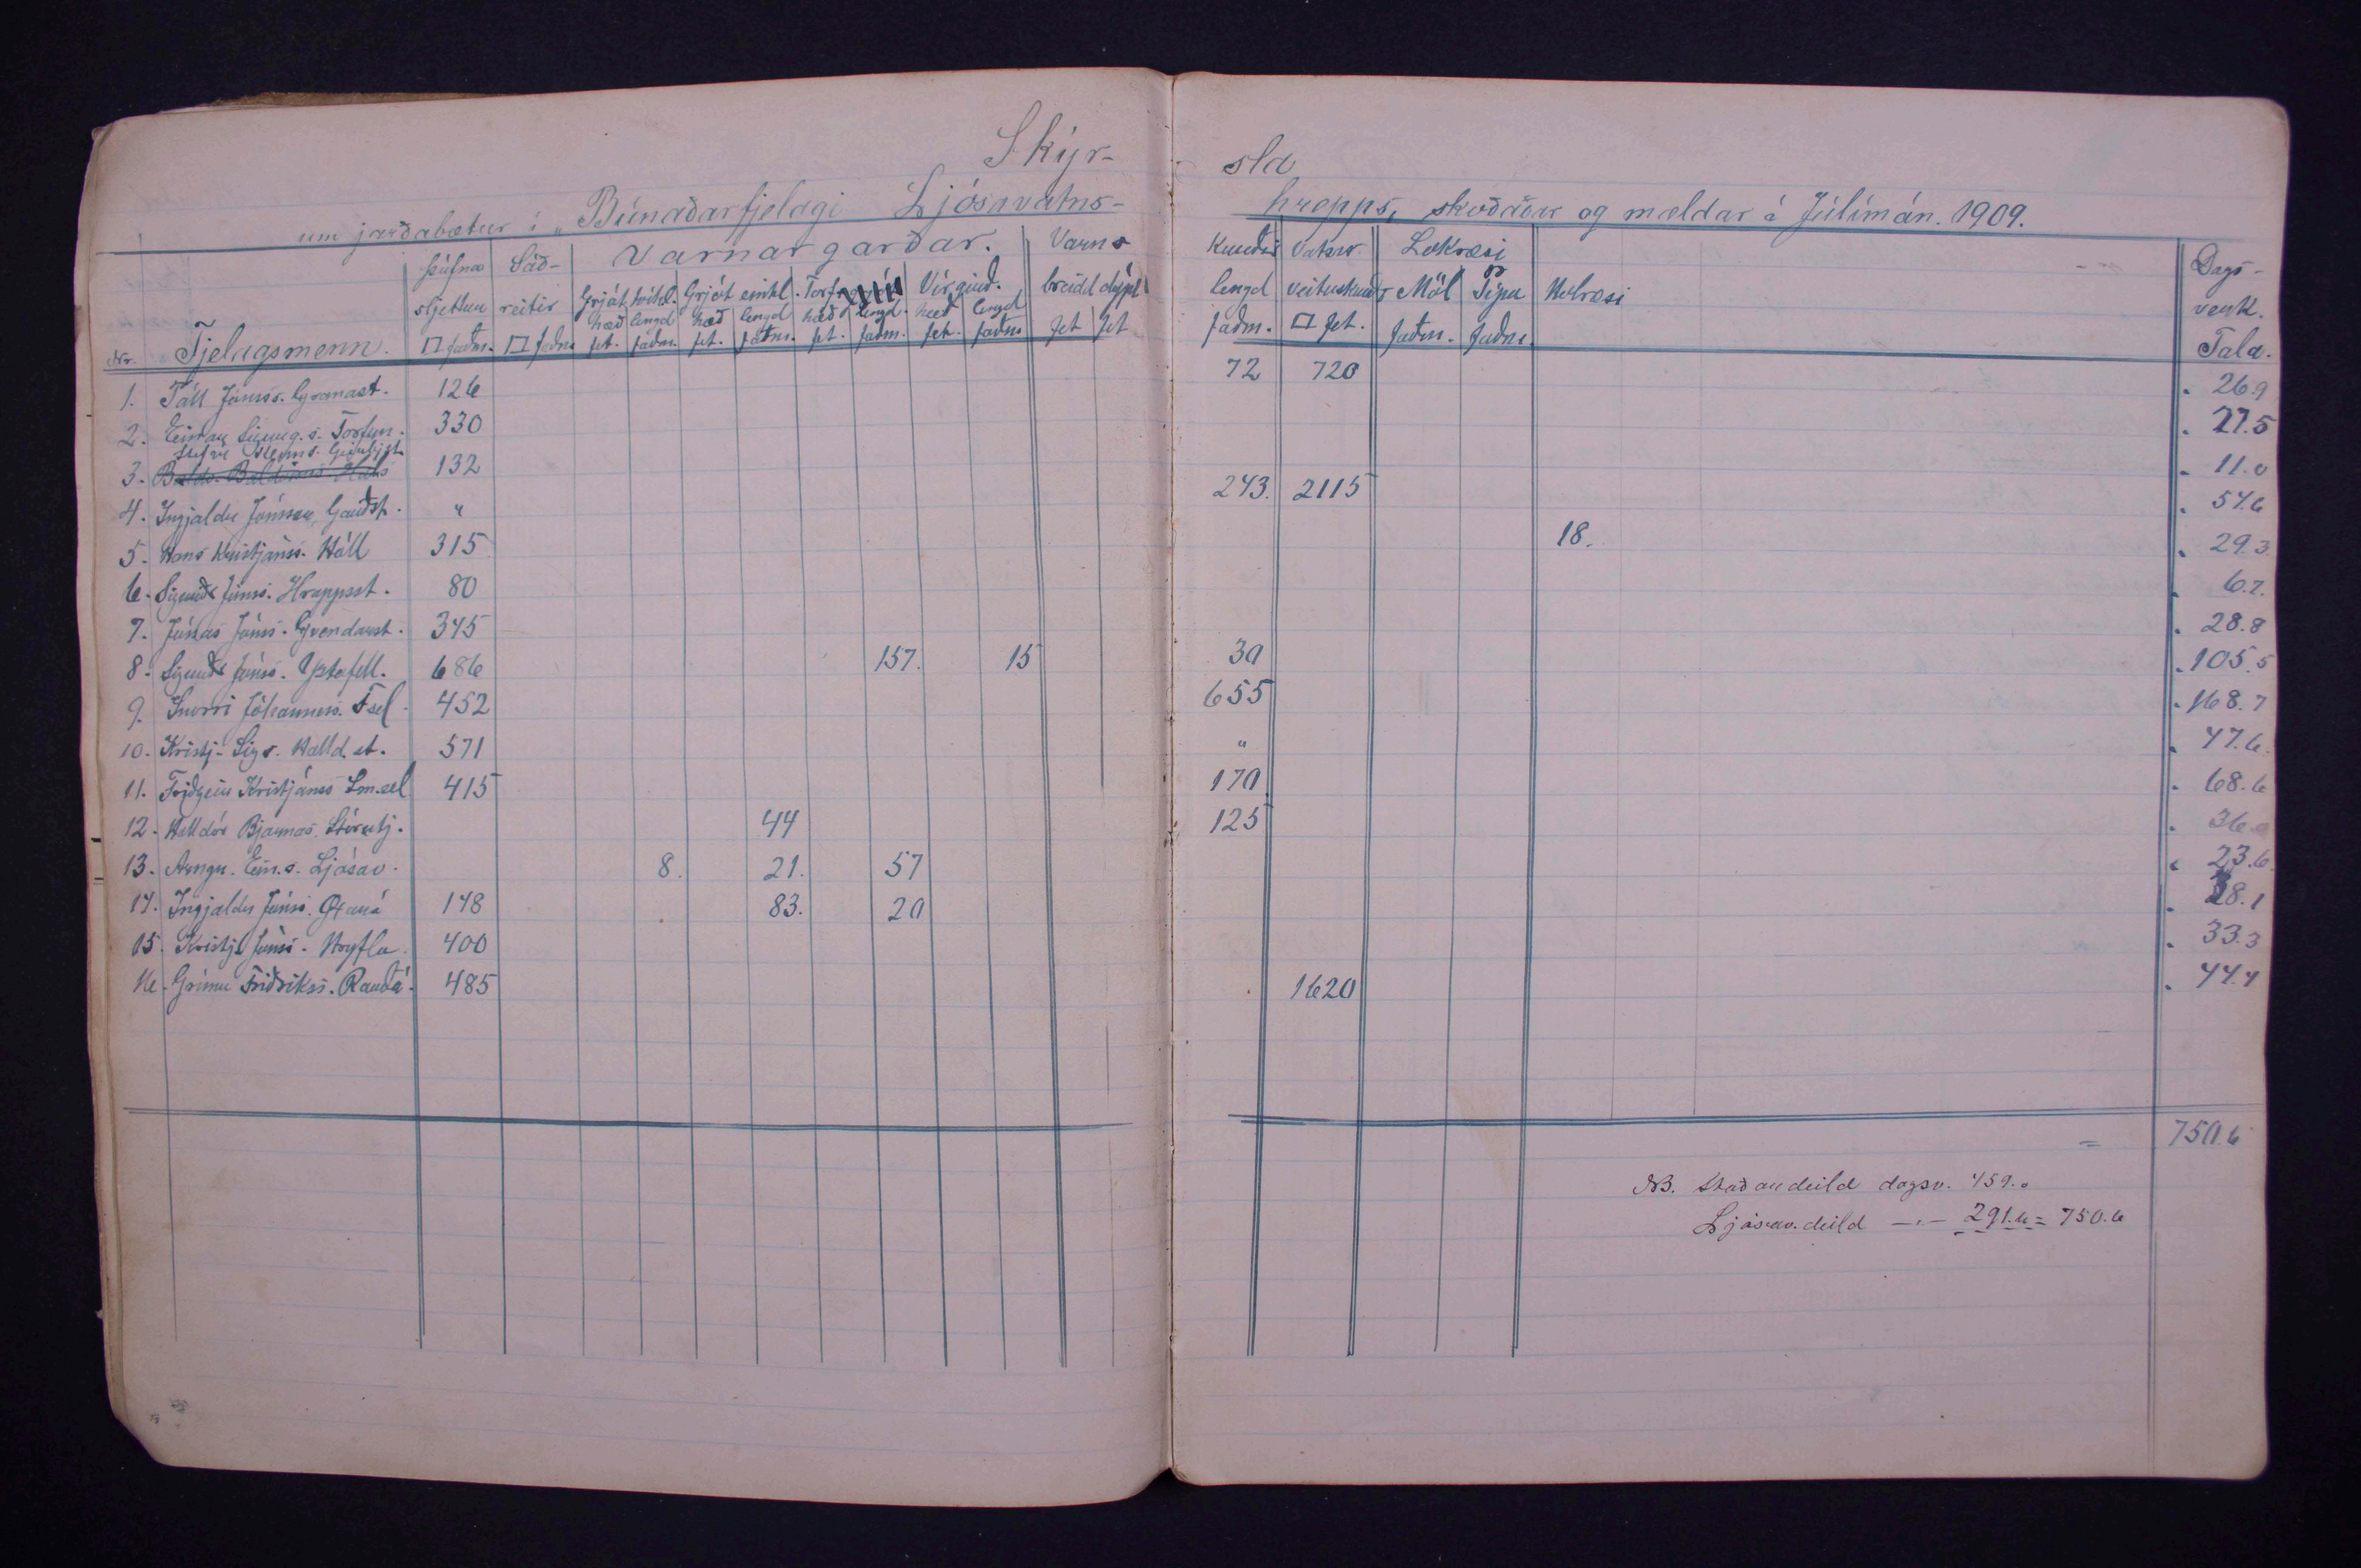 Skýr-
sla
um jarðabætur í „Búnaðarfjelagi Ljósavatns-
hrepps, skoðaðar og mældar í Júlímán. 1909.
Nr. Fjelagsmenn. Þúfna sljettun □ faðm. Sáð-reitir □ faðm. Varnargarðar. Grjót tvíhl. hæð fet. lengd faðm. Grjót einhl. hæð fet. lengd faðm. Torf hæð fet. lengd. faðm. Vírgirð. hæð fet. lengd faðm. Varns breidd fet dýpt fet
skurðir lengd faðm. Vatns veituskurðr □ fet. Lokræsi Möl faðm. Pípu faðm. Holræsi Dags-verk. Tala.
1. Páll Jónss. Granast. 126 72 720 26.9
2. Einar Sigurg.s. Torfun. 330 27.5
Stefán
3. 132 11.0
4. Ingjaldur Jónsson, Gautst. „ 243. 2115 54.6
5. Hans Kristjánss. Hóll 315 18. 29.3
6. Sigurðr Jónss. Hrappsst. 80 6.7.
7. Jónas Jónss. Gvendarst. 345 28.8
8. Sigurðr Jónss. Ystafell. 686 157. 15 30 105.5
9. Snorri Jóhanness. Fsel 452 655 168.7
10. Kristj. Sigs. Halld.st. 571 „ 47.6.
11. Friðgeir Kristjánss 415 170 68.6
12. Halldór Bjarnas. Stórutj. 44 125 36.0
13. Arngr. Ein.s. Ljósav. 8. 21. 57 23.6
14. Ingjaldur Jónss. Öxará 148 83. 20 28.1
15. Kristj. Jónss. 400 33.3
16. Grímur Friðrikss. Rauðá. 485 1620 44.4
= 750.6
NB. dagsv. 459.0
Ljósav.deild —„— 291.6 = 750.6